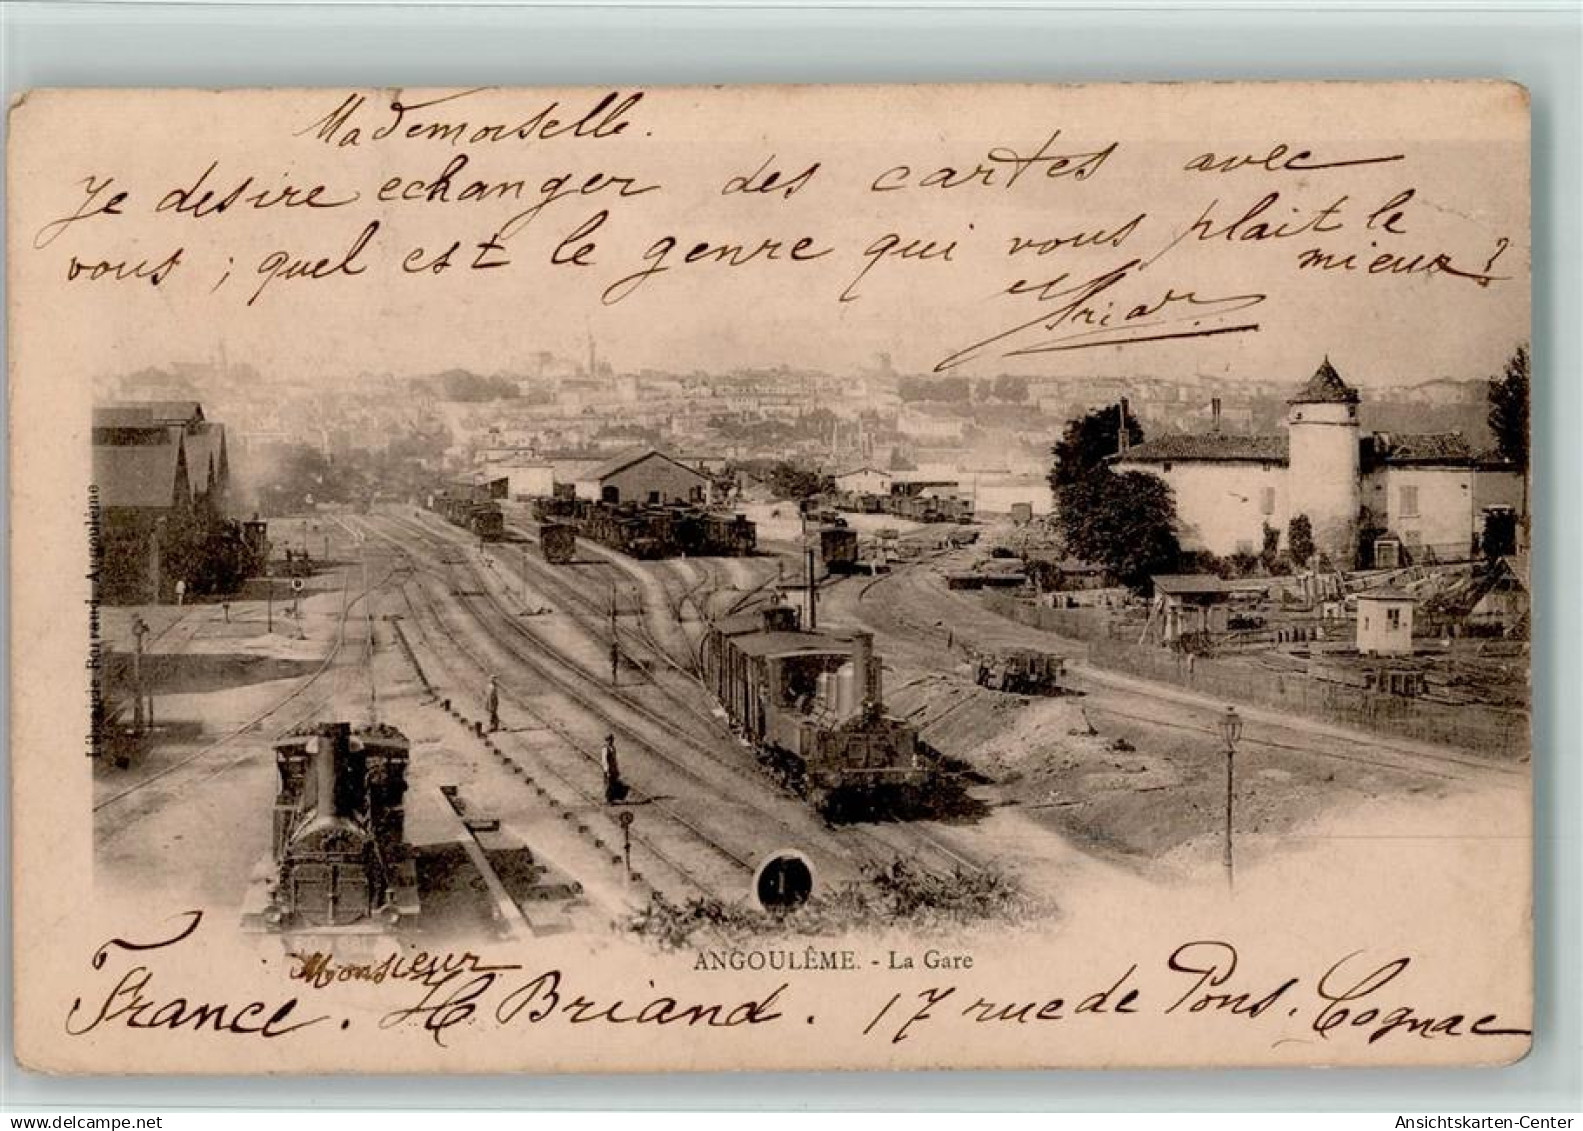 Mademoiselle.
Je desire echanger des cartes avec
vous ; quel est le genre qui vous plait le
mieux ?
Briand
Librairie Barraud, Angoulême
1
ANGOULÊME. - La Gare
Monsieur
France. H Briand. 17 rue de Pons. Cognac
delcampe.net
Ansichtskarten-Center